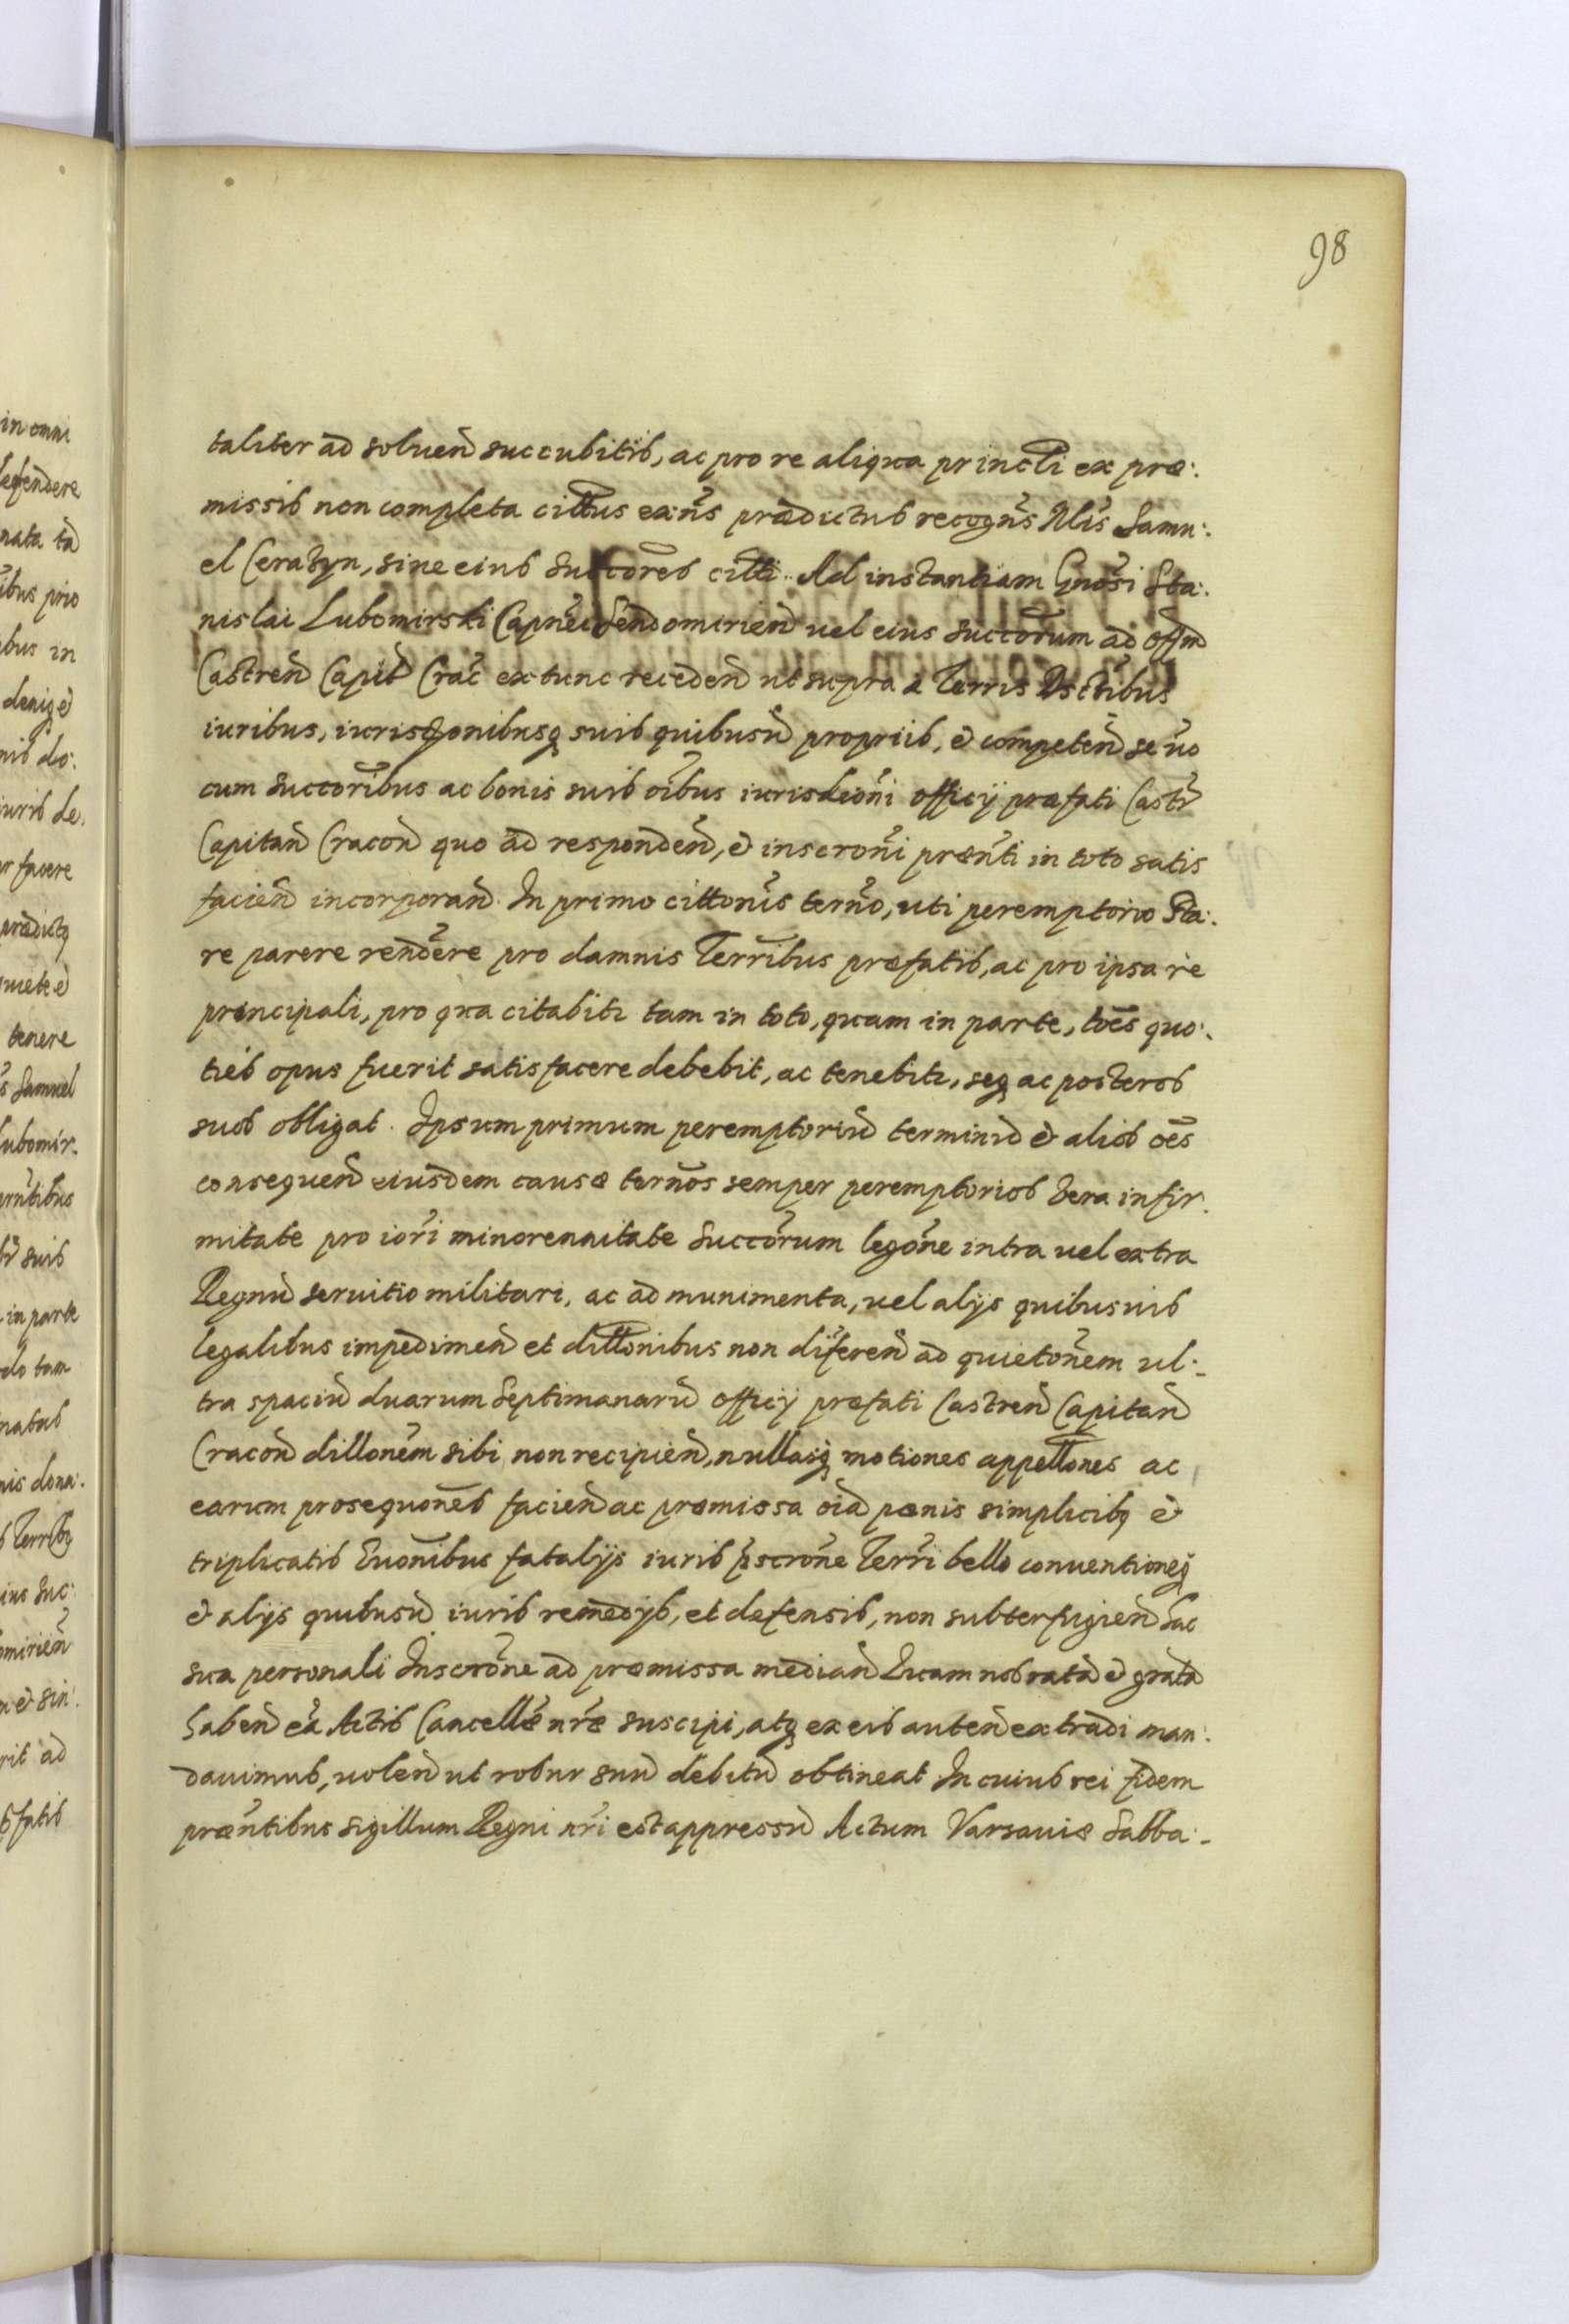 98
taliter ad soluend succubitis, ac pro re aliqua princli ex præ:
missis non completa cittus exns prædictus recogns Nlis Samu:
el Cerazyn, siue eius Succores citti. Ad instantiam Gnosi Sta:
nislai Lubomirski Capnei Sendomirien uel eius succorum ad offm
Castren Capit Crac ex tunc receden ut supra a Terris Dstibus
iuribus, iurisdonibusq suis quibusu propriis, et competen se uo
cum succoribus ac bonis suis oibus iurisdioni officij præfati Castr
Capitan Cracon quo ad responden, et inscroni prænti in toto satis
facien incorporan. In primo cittonis termo, uti peremptorio Sta:
re parere rendere pro damnis Terribus præfatis, ac pro ipsa re
principali, pro qua citabitr tam in toto, quam in parte, toes quo:
ties opus fuerit satisfacere debebit, ac tenebitr, seq ac posteros
suos obligat. Ipsum primum peremptoriu terminu et alios oes
consequen eiusdem causæ ternos semper peremptorios Vera infir:
mitate pro iori minorennitate Succorum legone intra uel extra
Regnu seruitio militari, ac ad munimenta, uel alijs quibusuis
legalibus impedimen et dillonibus non diferen ad quietonem ul:
tra spaciu duarum Septimanaru officij præfati Castren Capitan
Cracon dillonem sibi non recipien, nullasq motiones appellones ac
earum prosequones facien ac præmissa oia pænis simplicibq et
triplicatis Euonibus fatalijs iuris pscrone Terri bello conuentioneq
et alijs quibusu iuris remedijs, et defensis, non subterfugien hac
sua personali Inscrone ad præmissa median Quam nos rata et grata
haben ea Actis Cancellæ nræ suscipi, atq ex eis auten extradi man:
dauimus, uolen ut robur suu debitu obtineat In cuius rei fidem
præntibus sigillum Regni nri est appressu Actum Varsauiæ Sabba: